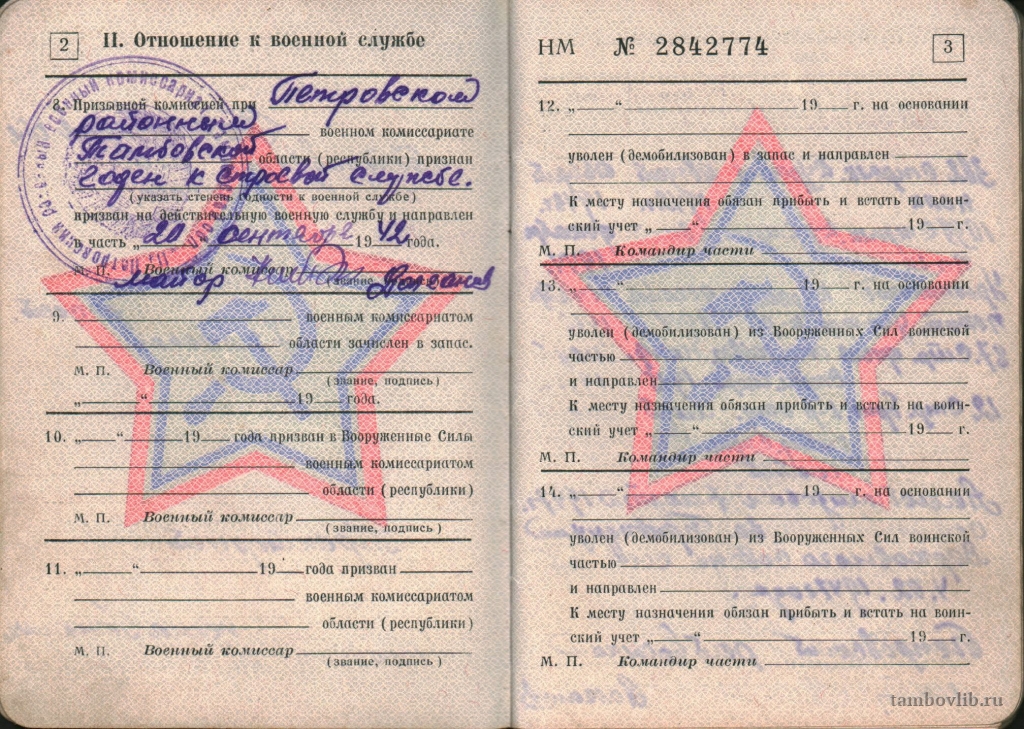 2
II. Отношение к военной службе
8. Призывной комиссией при Петровском
районным военном комиссариате
Тамбовской области (республики) признан
годен к строевой службе.
(указать степень годности к военной службе)
призван на действительную военную службу и направлен
в часть „20“ сентября 1942 года.
М. П. Военный комиссар
майор
(звание, подпись)
9. военным комиссариатом
области зачислен в запас.
М. П. Военный комиссар
(звание, подпись)
„ “ 19 года.
10. „ “ 19 года призван в Вооруженные Силы
военным комиссариатом
области (республики)
М. П. Военный комиссар
(звание, подпись)
11. „ “ 19 года призван
военным комиссариатом
области (республики)
М. П. Военный комиссар
(звание, подпись)
НМ № 2842774
3
12. „ “ 19 г. на основании
уволен (демобилизован) в запас и направлен
К месту назначения обязан прибыть и встать на воин-
ский учет „ “ 19 г.
М. П. Командир части
13. „ “ 19 г. на основании
уволен (демобилизован) из Вооруженных Сил воинской
частью
и направлен
К месту назначения обязан прибыть и встать на воин-
ский учет „ “ 19 г.
М. П. Командир части
14. „ “ 19 г. на основании
уволен (демобилизован) из Вооруженных Сил воинской
частью
и направлен
К месту назначения обязан прибыть и встать на воин-
ский учет „ “ 19 г.
М. П. Командир части
tambovlib.ru